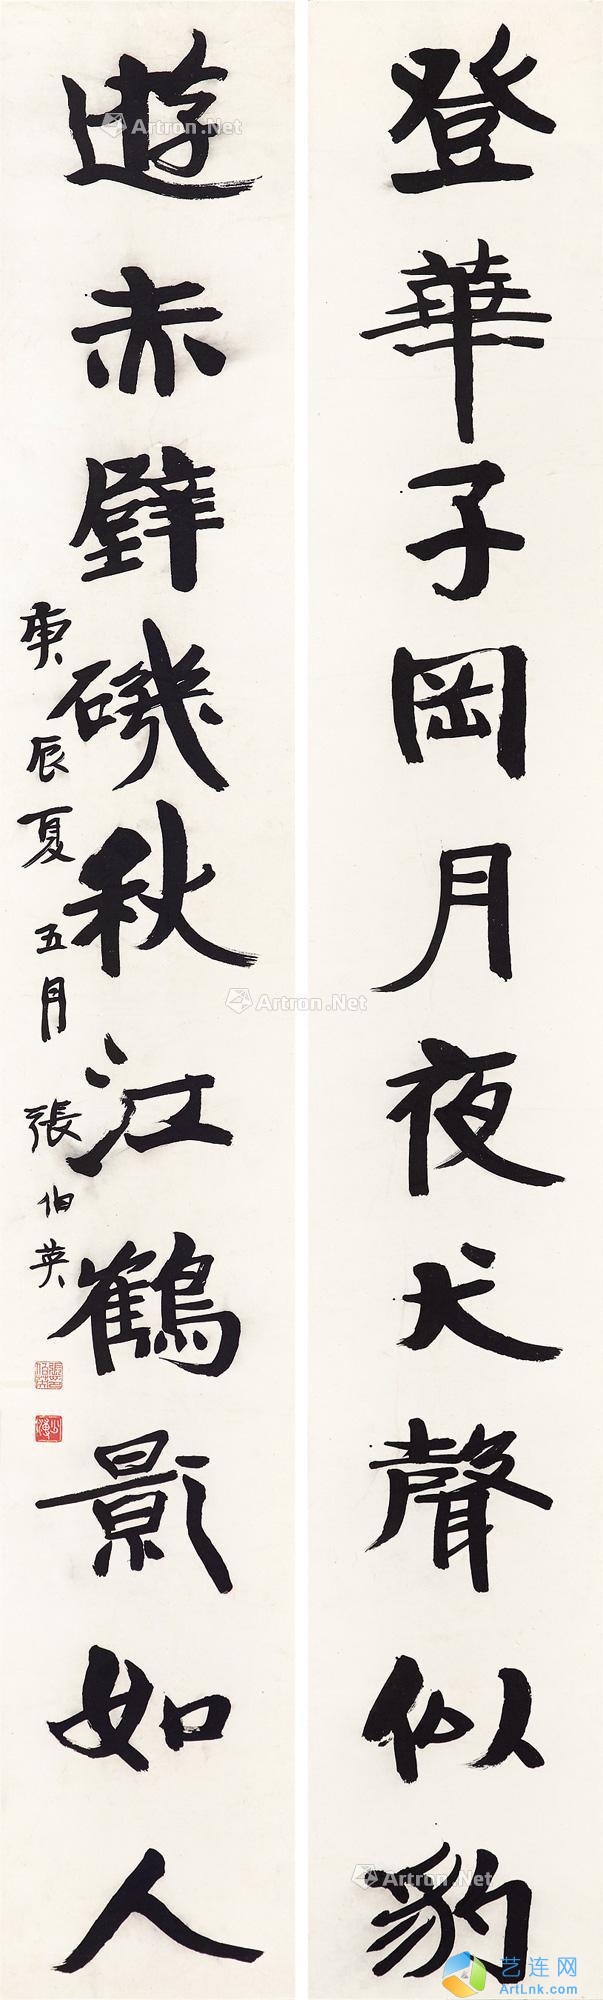 登華子岡月夜犬聲似豹
遊赤壁磯秋江鶴影如人
庚辰夏五月 張伯英
張伯英
少溥
Artron.Net
Artron.Net
Artron.Net
Artron.Net
艺连网
ArtLnk.com